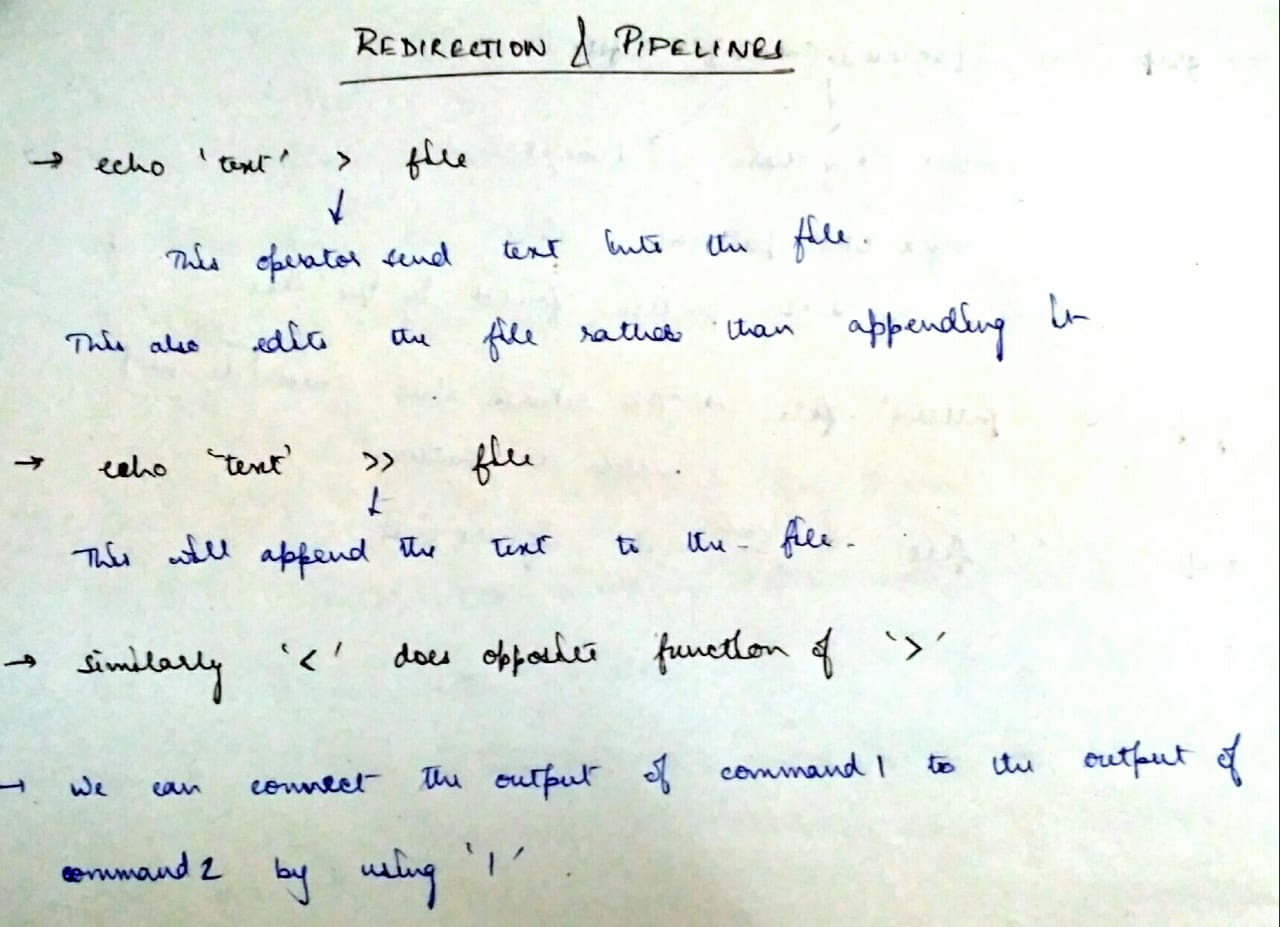 REDIRECTION & PIPELINES
→ echo 'text' > file
↓
This operator send text into the file.
This also edits the file rather than appending it
→ echo 'text' >> file
↓
This will append the text to the file.
→ similarly '<' does opposite function of '>'
→ We can connect the output of command 1 to the output of
command 2 by using '|'.